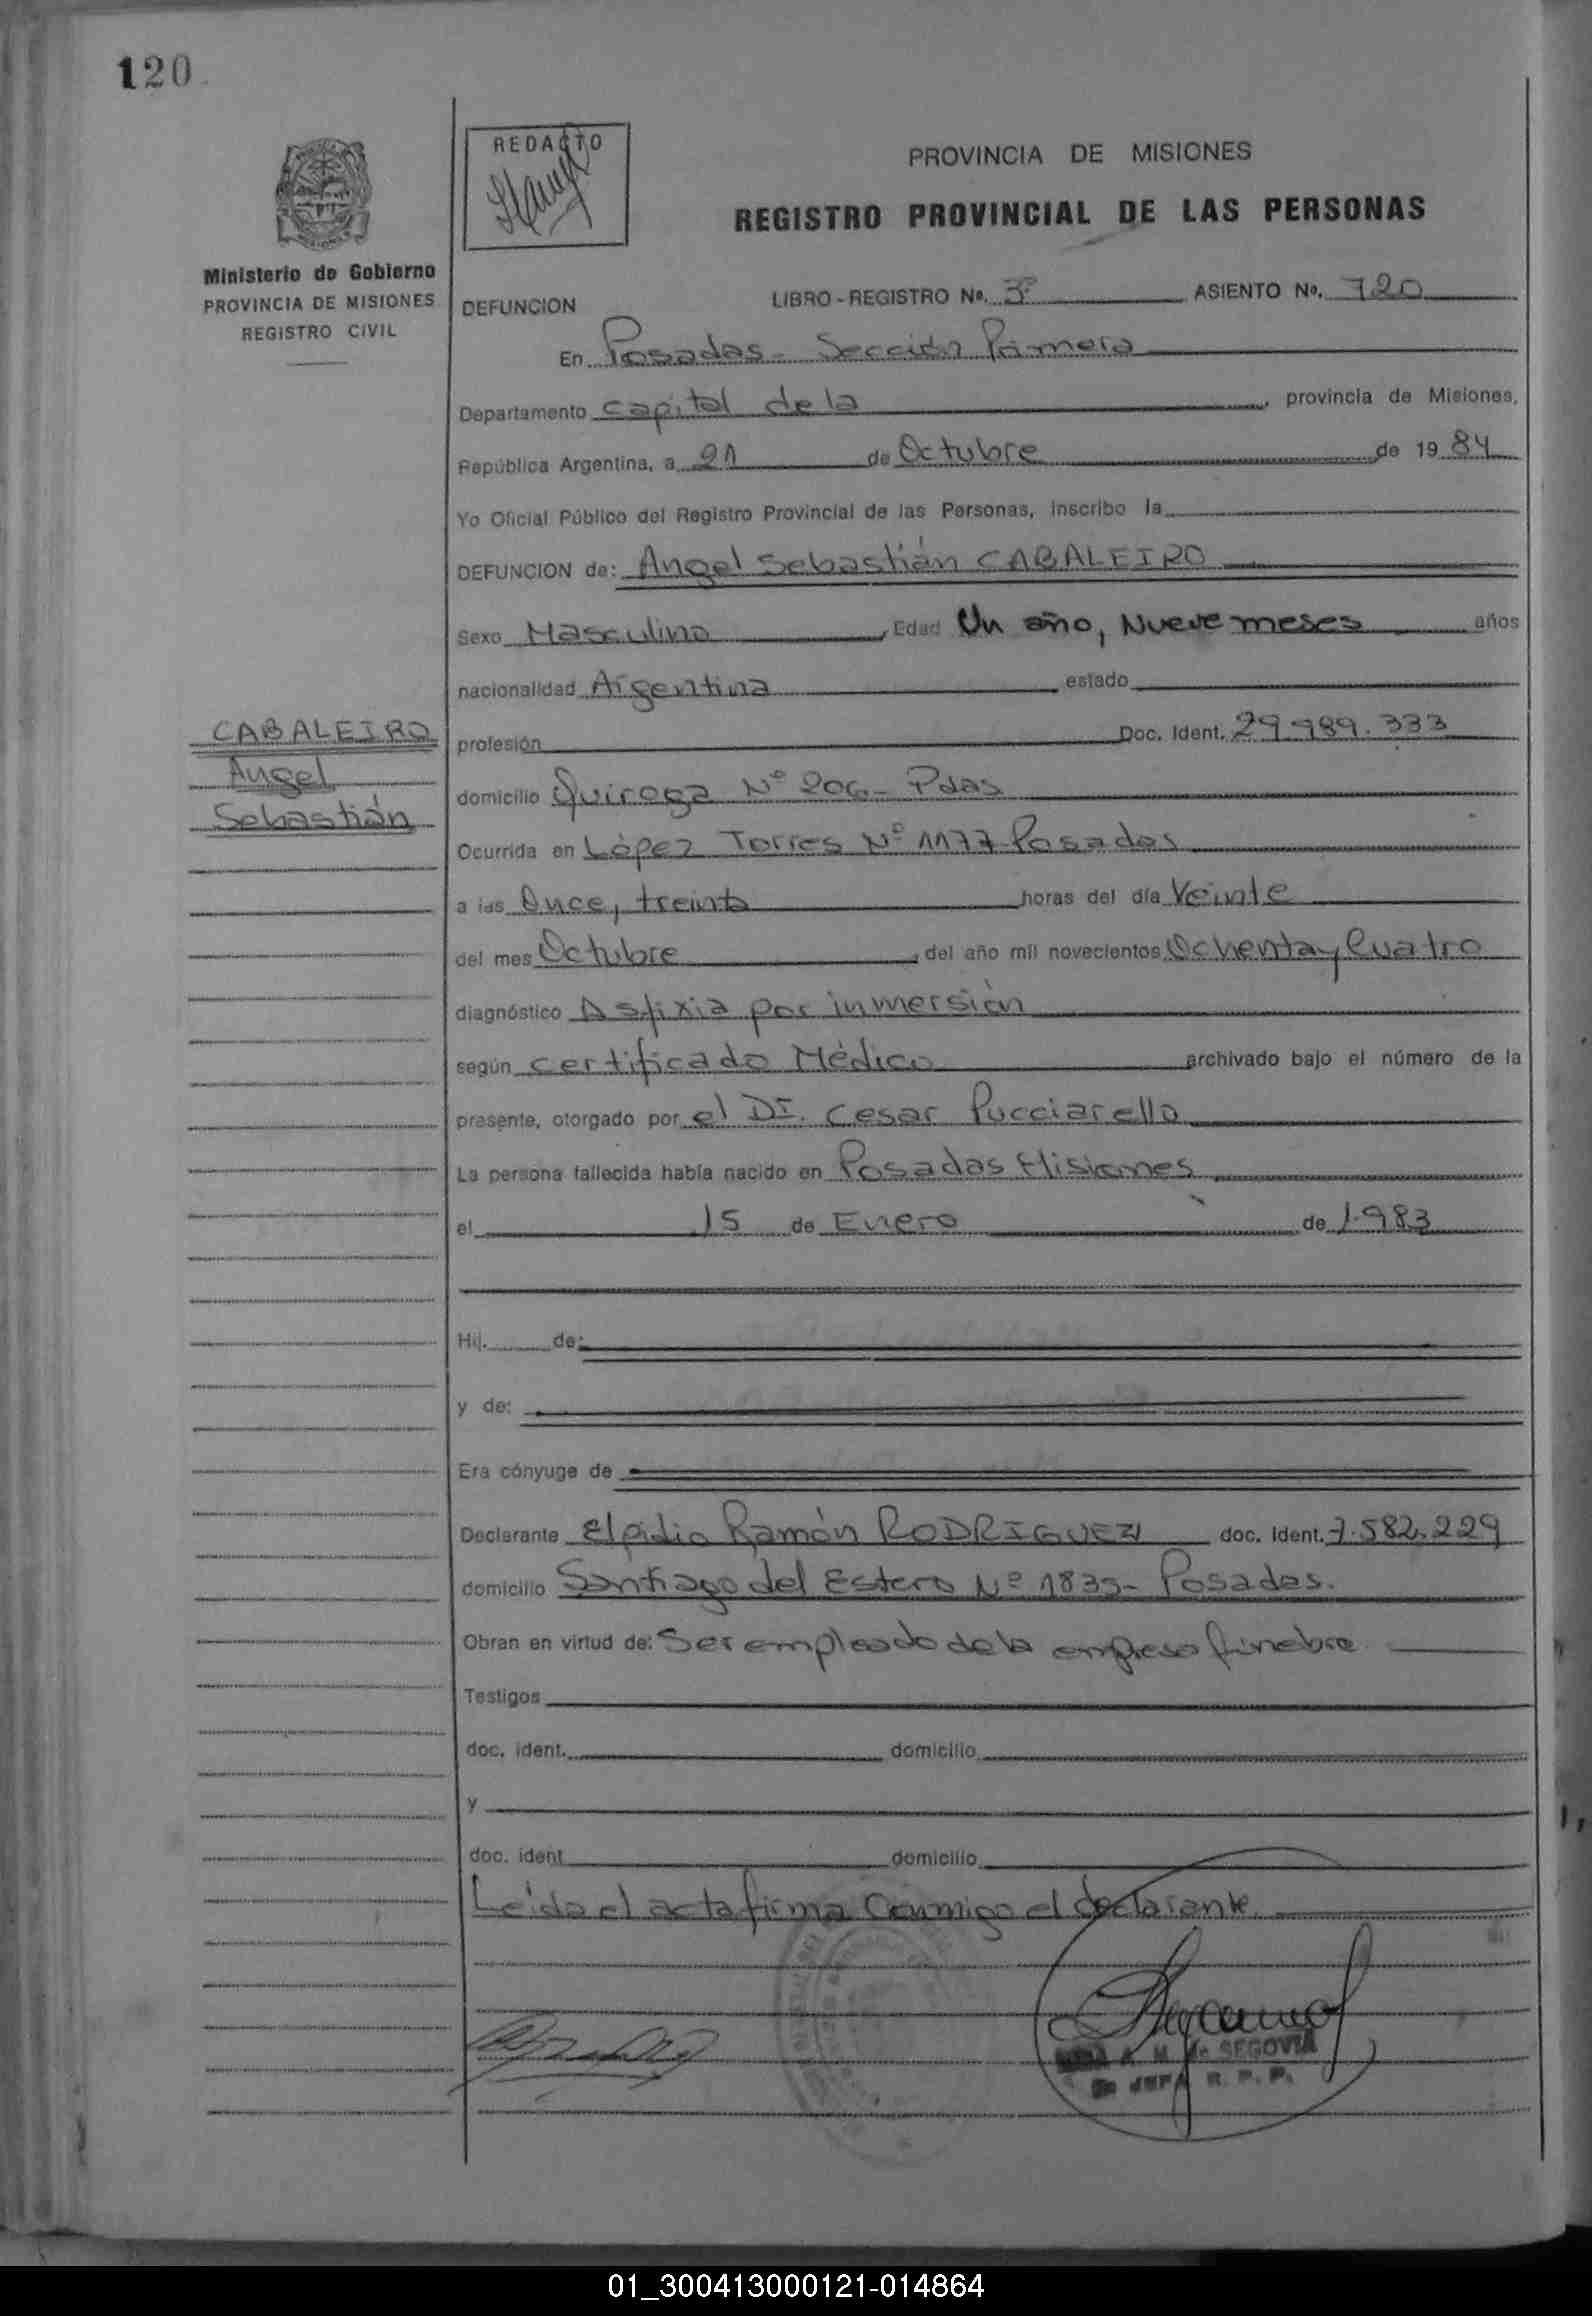 120
REDACTO
PROVINCIA DE MISIONES
REGISTRO PROVINCIAL DE LAS PERSONAS
Ministerio de Gobierno
PROVINCIA DE MISIONES
REGISTRO CIVIL
DEFUNCION LIBRO-REGISTRO No. 3º ASIENTO No. 720
En Posadas - Sección Primera
Departamento capital de la, provincia de Misiones,
República Argentina, a 21 de Octubre de 1984
Yo Oficial Público del Registro Provincial de las Personas, inscribo la
DEFUNCION de: Angel Sebastián CABALEIRO
Sexo Masculino, Edad Un año, Nueve meses años
nacionalidad Argentina estado
CABALEIRO
Angel
Sebastián
profesión Doc. Ident. 29.989.333
domicilio Quiroga Nº 206 - Pdas
Ocurrida en López Torres Nº 1177 Posadas
a las Once, treinta horas del día Veinte
del mes Octubre, del año mil novecientos Ochenta y Cuatro
diagnóstico Asfixia por inmersión
según certificado Médico archivado bajo el número de la
presente, otorgado por el Dr. Cesar Pucciarello
La persona fallecida había nacido en Posadas Misiones
el 15 de Enero de 1.983
Hij. de:
y de:
Era cónyuge de
Declarante Elpidio Ramón RODRIGUEZ doc. Ident. 7.582.229
domicilio Santiago del Estero Nº 1835 - Posadas.
Obran en virtud de: Ser empleado de la empresa fúnebre
Testigos
doc. ident. domicilio
y
doc. ident domicilio
Leída el acta firma Conmigo el declarante
A. M. de SEGOVIA
JEFA R. P. P.
01_300413000121-014864